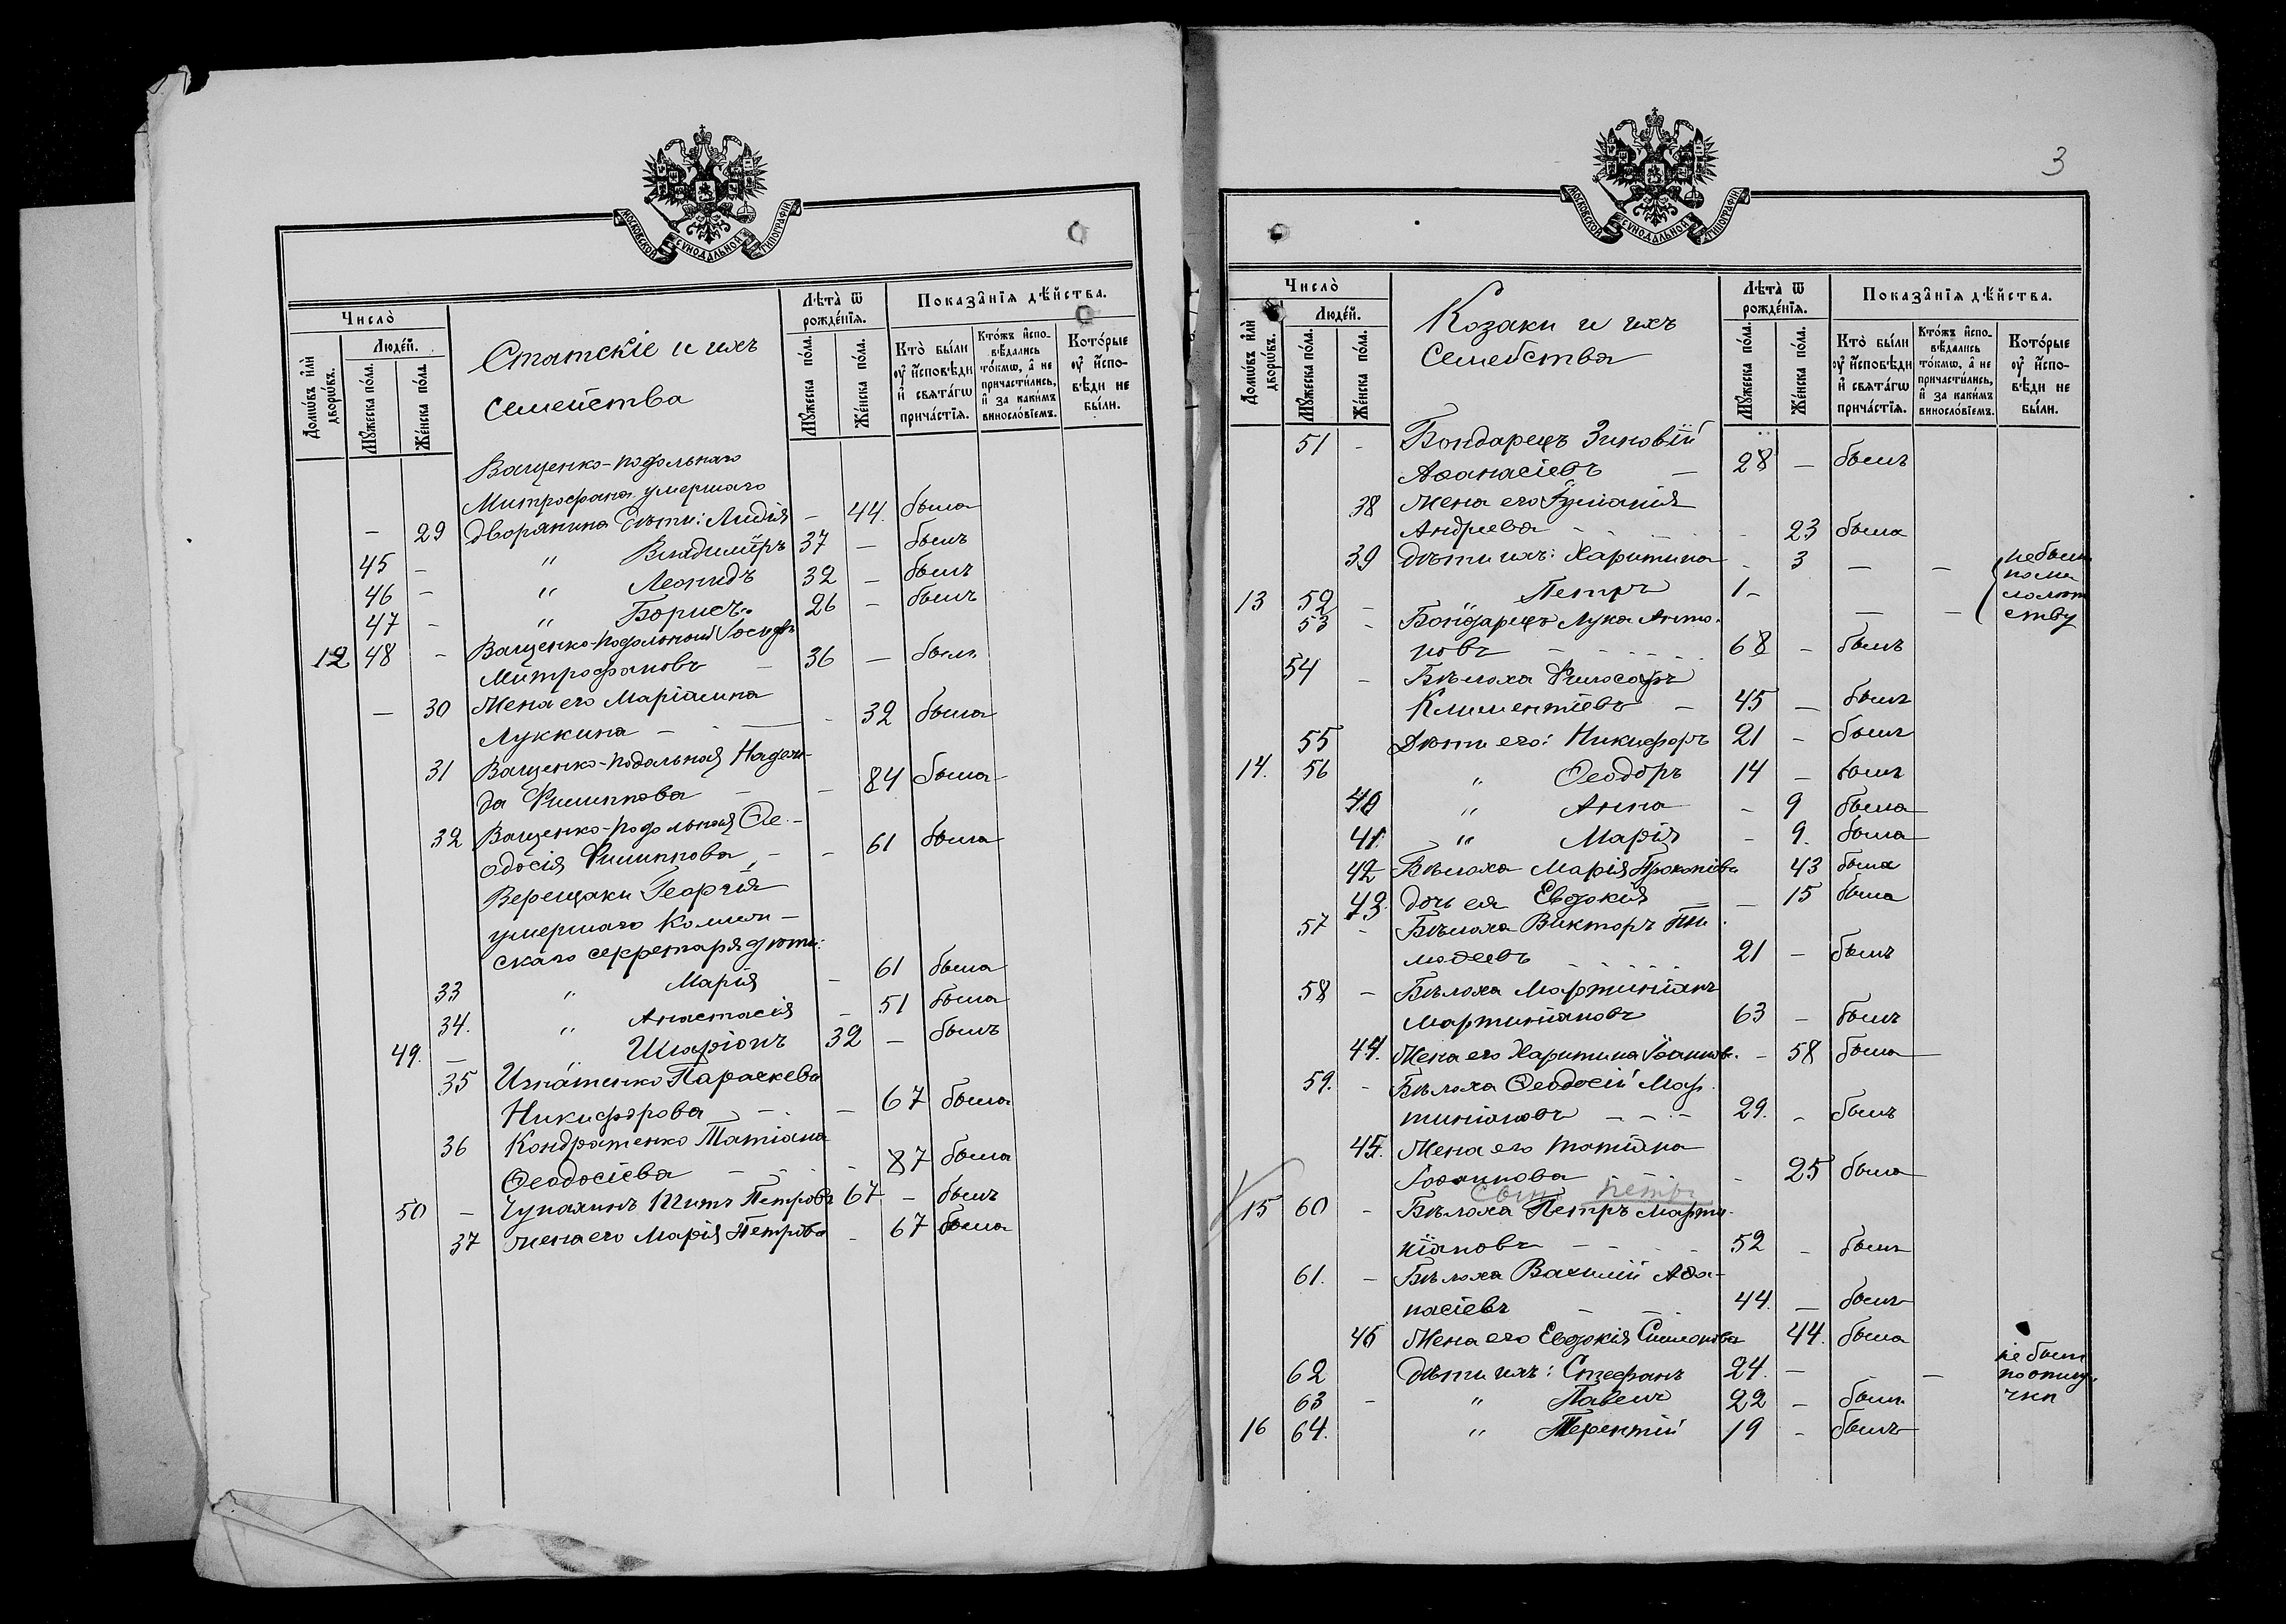 МОСКОВСКОЙ СѴНОДАЛЬНОЙ ТИПОГРАФІИ
Число̀
Домѡ́въ и҆лѝ дворѡ́въ.
Люде́й.
Мꙋ́жеска по́ла.
Же́нска по́ла.
Статскіе и ихъ
семейства
Лѣ́та ѿ рожде́нїѧ.
Мꙋ́жеска по́ла.
Же́нска по́ла.
Показа̂нїѧ дѣ́йства.
Кто̀ бы́ли ᲂу҆ и҆́сповѣди и҆ свѧта́гѡ прича́стїѧ.
Кто́жъ и҆спо-вѣ́дались то́кмѡ, а҆ не причасти́лись, и҆ за каки́мъ винослѡ́вїемъ.
Кото́рые ᲂу҆ и҆́спо-вѣди не бы́ли.
Ващенко-подольнаго
Митрофана умершаго
— 29 дворянина дѣти: Лидія — 44. была
45 — " Владиміръ 37 — былъ
46 — " Леонидъ 32 — былъ
47 — " Борисъ. 26 — былъ
12 48 — Ващенко-подольный Іосифъ
Митрофановъ — 36 — былъ
— 30 Жена его Маріамна
Луккина — 32 была
31 Ващенко-подольная Надеж-
да Филиппова — — 84 была
32 Ващенко-подольная Ѳе-
одосія Филиппова — — 61 была
Верещаки Георгія
умершаго Коллеж-
скаго секретаря дѣти:
33 " Марія — 61 была
34. " Анастасія — 51 была
49. — " Иларіонъ 32 — былъ
35 Игнатенко Параскева
Никифорова — — 67 была
36 Кондратенко Татіана
Ѳеодосіева — — 87 была
50 — Чупахинъ Титъ Петровъ 67 — былъ
37 Жена его Марія Петрова — 67 была
3
МОСКОВСКОЙ СѴНОДАЛЬНОЙ ТИПОГРАФІИ
Число̀
Домѡ́въ и҆лѝ дворѡ́въ.
Люде́й.
Мꙋ́жеска по́ла.
Же́нска по́ла.
Козаки и ихъ
семейства
Лѣ́та ѿ рожде́нїѧ.
Мꙋ́жеска по́ла.
Же́нска по́ла.
Показа̂нїѧ дѣ́йства.
Кто̀ бы́ли ᲂу҆ и҆́сповѣди и҆ свѧта́гѡ прича́стїѧ.
Кто́жъ и҆спо-вѣ́дались то́кмѡ, а҆ не причасти́лись, и҆ за каки́мъ винослѡ́вїемъ.
Кото́рые ᲂу҆ и҆́спо-вѣди не бы́ли.
51 — Бондарецъ Зиновій
Аѳанасіевъ — 28 — былъ
38 Жена его
Андреева — 23 была
39 дѣти ихъ: Харитина — 3 — — не были
по ма
13 52 — Петръ 1 — лолѣт
53 — Бондарецъ Лука Анто- — — ству
новъ 68 — былъ
54 — Бѣлоха Философъ
Климентіевъ — 45 — былъ
55 Дѣти его: Никифоръ 21 — былъ
14. 56 " Ѳеодоръ 14 — былъ
40 " Анна — 9 была
41. " Марія — 9. была
42 Бѣлоха Марія Прокопіева 43 была
43. дочь ея Евдокія — 15 была
57 — Бѣлоха Викторъ Ти
моѳеевъ 21 — былъ
58 — Бѣлоха Мартиніанъ
Мартиніановъ 63 — былъ
44. Жена его Харитина Іоаннов. — 58 была
59. — Бѣлоха Ѳеодосій Мар-
тиніановъ 29. — былъ
45. Жена его Татіана
Іоаннова — 25 была
сынъ Петръ
15 60 — Бѣлоха Петръ Марти-
ніановъ 52 — былъ
61. — Бѣлоха Василій Аѳа-
насіевъ 44. — былъ
46 Жена его Евдокія Симонова 44. была
62 дѣти ихъ: Стефанъ 24. — — не былъ
по отлу-
63 — " Павелъ 22 — былъ чкѣ
16 64. " Терентій 19 — былъ